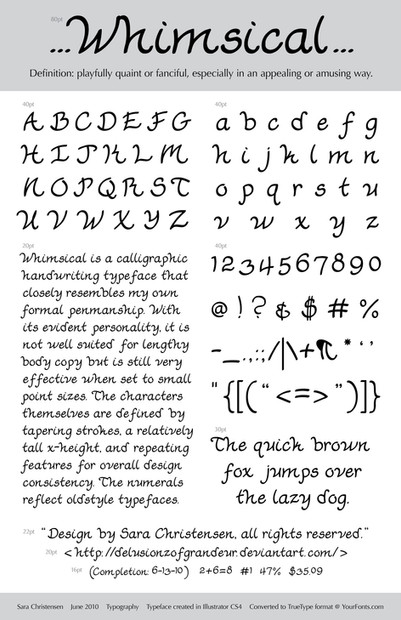 80pt
...Whimsical...
Definition: playfully quaint or fanciful, especially in an appealing or amusing way.
40pt
A B C D E F G
H I J K L M
N O P Q R S T
U V W X Y Z
40pt
a b c d e f g
h i j k l m n
o p q r s t u
v w x y z
20pt
Whimsical is a calligraphic
handwriting typeface that
closely resembles my own
formal penmanship. With
its evident personality, it is
not well suited for lengthy
body copy but is still very
effective when set to small
point sizes. The characters
themselves are defined by
tapering strokes, a relatively
tall x-height, and repeating
features for overall design
consistency. The numerals
reflect oldstyle typefaces.
40pt
1 2 3 4 5 6 7 8 9 0
@ ! ? & $ # %
-_.,:;/|\+¶*‘’
"{[(“<=>”)]}
30pt
The quick brown
fox jumps over
the lazy dog.
22pt
“Design by Sara Christensen, all rights reserved.”
20pt
<http://delusionzofgrandeur.deviantart.com/>
16pt
(Completion: 6-13-10) 2+6=8 #1 47% $35.09
Sara Christensen June 2010 Typography Typeface created in Illustrator CS4 Converted to TrueType format @ YourFonts.com